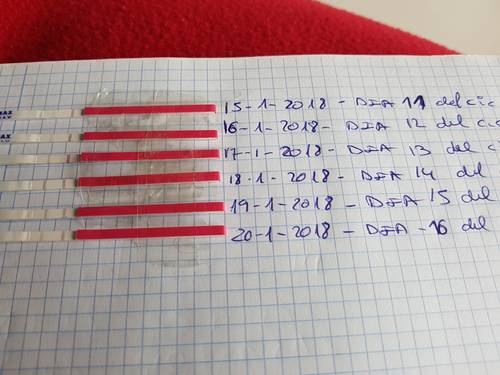 MAX
15-1-2018 - DIA 11 del cic
MAX
16-1-2018 - DIA 12 del cic
17-1-2018 - DIA 13 del c
18-1-2018 - DIA 14 del
19-1-2018 - DIA 15 del
20-1-2018 - DIA -16 del